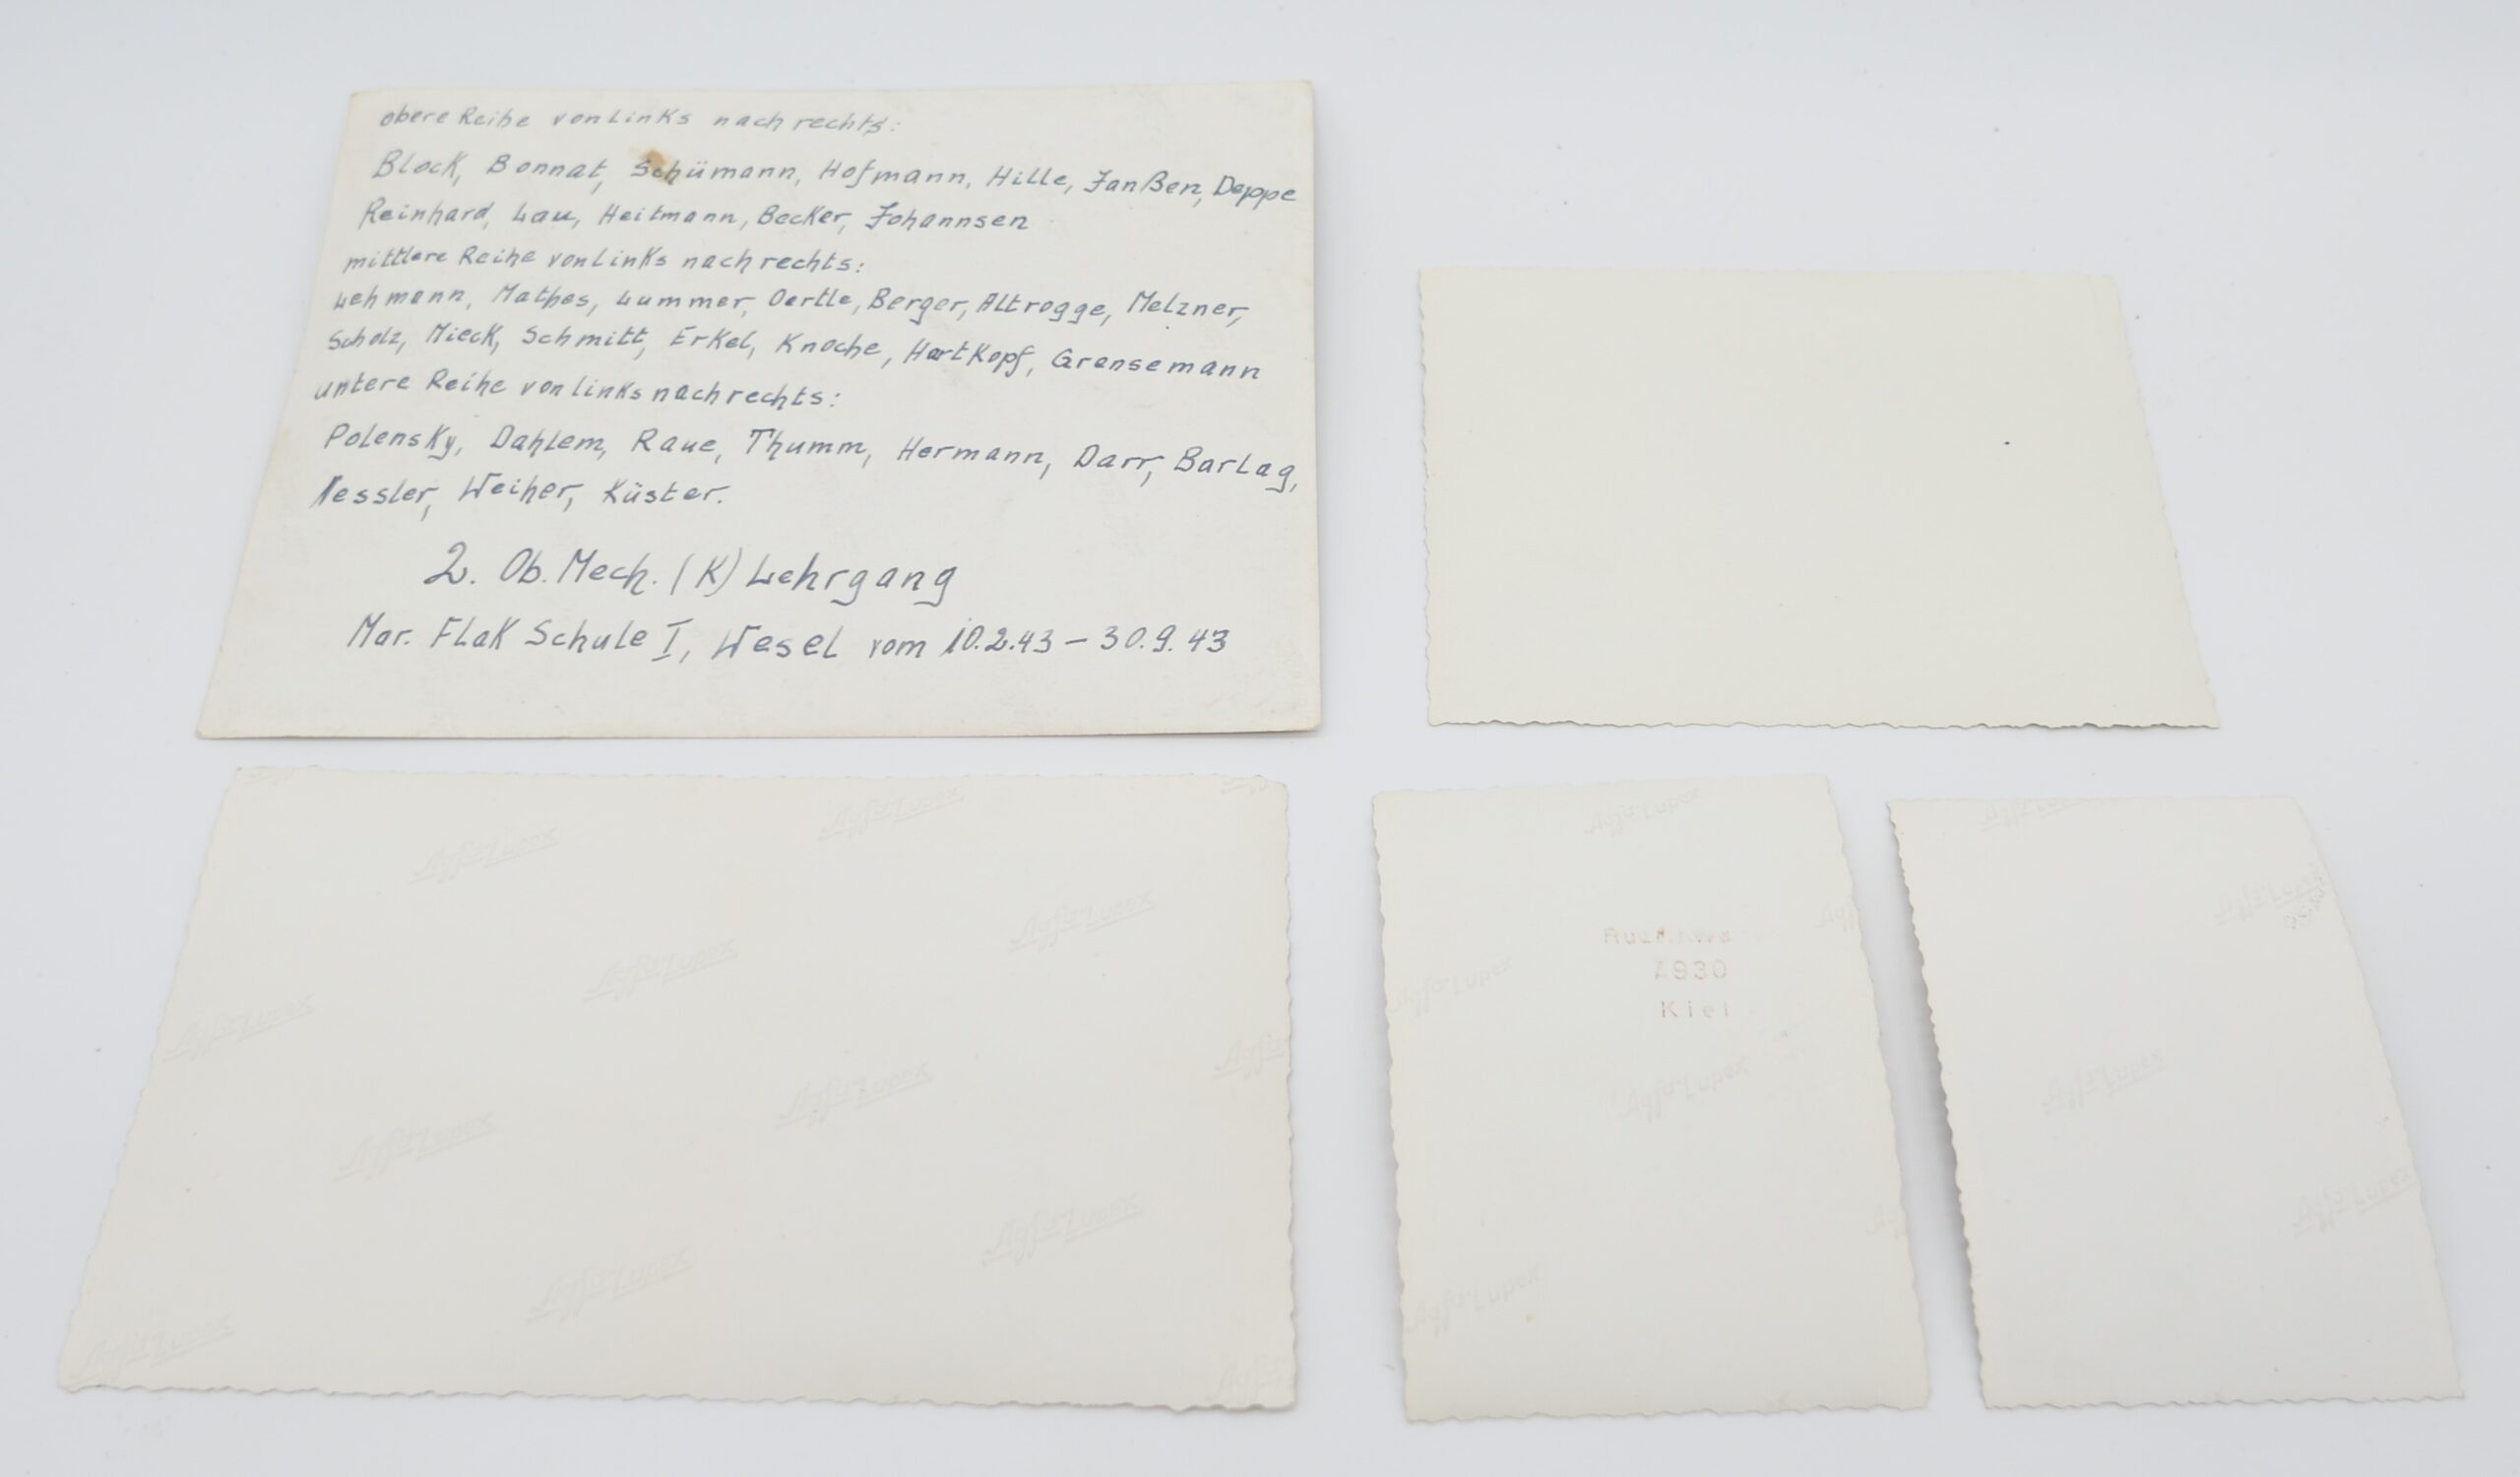 obere Reihe von Links nach rechts:
Block, Bonnat, Schümann, Hofmann, Hille, Janßen, Deppe
Reinhard, Lau, Heitmann, Becker, Johannsen
mittlere Reihe von Links nach rechts:
Lehmann, Mathes, Lummer, Oertle, Berger, Altrogge, Melzner,
Scholz, Mieck, Schmitt, Erkel, Knoche, Hartkopf, Grensemann
untere Reihe von links nach rechts:
Polensky, Dahlem, Raue, Thumm, Hermann, Darr, Barlag,
Nessler, Weiher, Küster.
2. Ob. Mech. (K) Lehrgang
Mar. Flak Schule I, Wesel vom 10.2.43 – 30.9.43
Agfa Lupex
Agfa Lupex
Agfa Lupex
Agfa Lupex
Agfa Lupex
Agfa Lupex
Agfa Lupex
Agfa Lupex
Agfa Lupex
Agfa Lupex
Agfa
Agfa
Agfa Lupex
Agfa Lupex
A930
Kiel
Agfa Lupex
Agfa Lupex
Agfa Lupex
Agfa Lupex
Agfa Lupex
Agfa Lupex